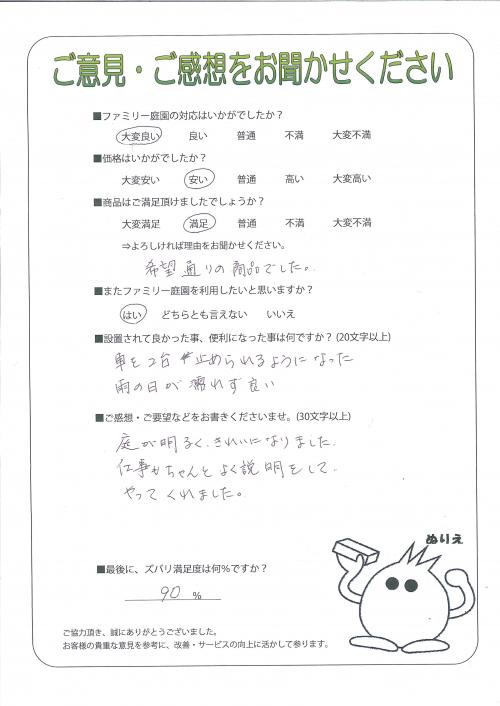 ご意見・ご感想をお聞かせください
■ファミリー庭園の対応はいかがでしたか？
大変良い 良い 普通 不満 大変不満
■価格はいかがでしたか？
大変安い 安い 普通 高い 大変高い
■商品はご満足頂けましたでしょうか？
大変満足 満足 普通 不満 大変不満
⇒よろしければ理由をお聞かせください。
希望通りの商品でした。
■またファミリー庭園を利用したいと思いますか？
はい どちらとも言えない いいえ
■設置されて良かった事、便利になった事は何ですか？(20文字以上)
車を2台 止められるようになった
雨の日が濡れず良い
■ご感想・ご要望などをお書きくださいませ。(30文字以上)
庭が明るく、きれいになりました。
仕事もちゃんとよく説明をして、
やってくれました。
ぬりえ
■最後に、ズバリ満足度は何%ですか？
90 %
ご協力頂き、誠にありがとうございました。
お客様の貴重な意見を参考に、改善・サービスの向上に活かして参ります。